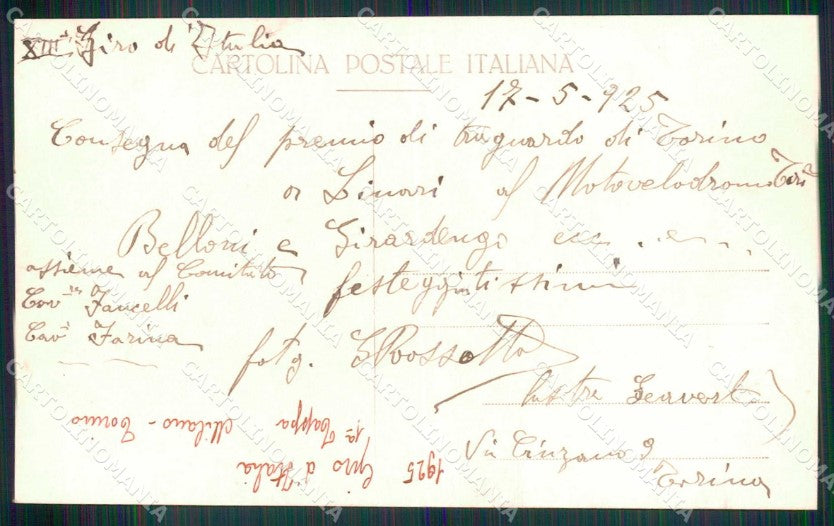 XIII° Giro d'Italia
CARTOLINA POSTALE ITALIANA
17-5-925
Consegna del premio di traguardo di Torino
a Linari al Motovelodromo
Belloni e Girardengo ecc.
festeggiatissimi
assieme al Comitato
Fancelli
Cav Farina
fotg.
lastre
Via Cinzano 9
Torino
1925 Giro d'Italia
1a Tappa Milano - Torino
CARTOLINOMANIA